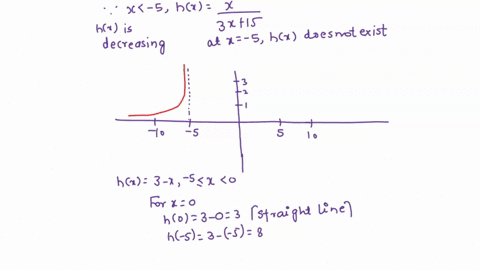 ∵ x<-5, h(x) = x/(3x+15)
h(x) is
decreasing at x=-5, h(x) does not exist
3
2
1
-10 -5 5 10
h(x) = 3-x, -5 ≤ x < 0
For x=0
h(0) = 3-0 = 3 [straight line]
h(-5) = 3-(-5) = 8